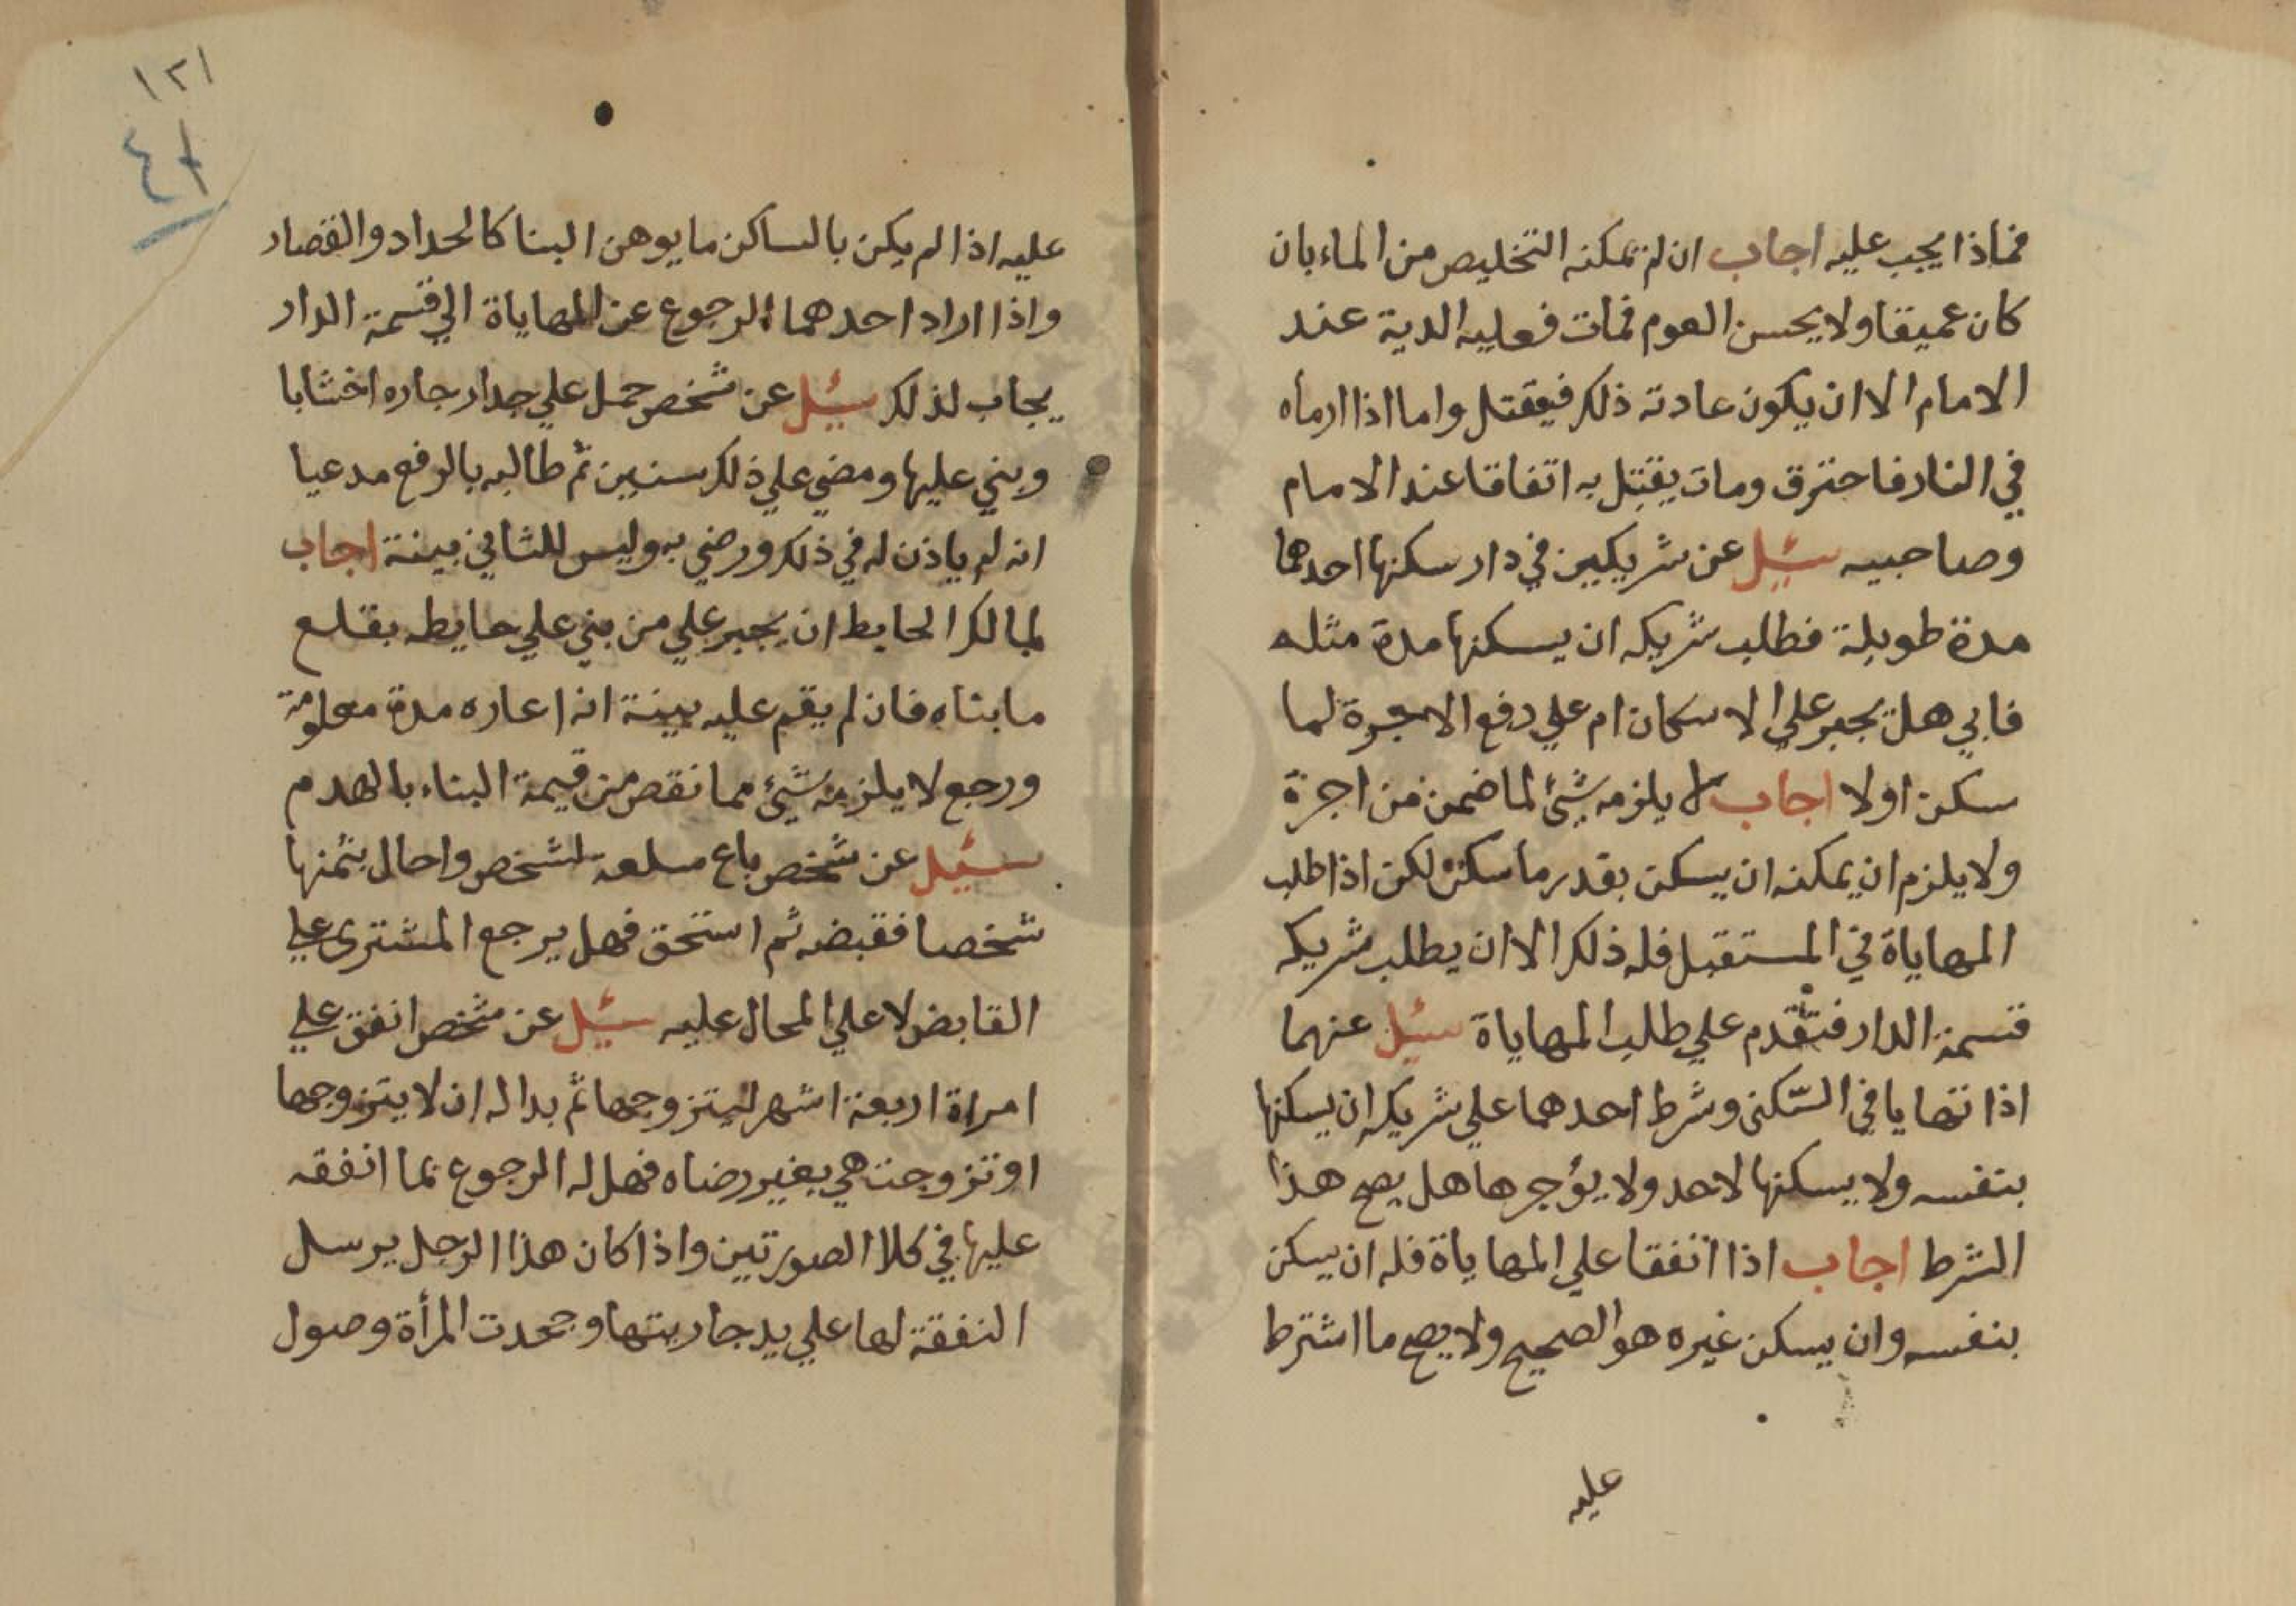 فماذا يجب عليه اجاب ان لم يمكنه التخليص من الماء بان
كان عميقا ولا يحسن العوم فمات فعليه الدية عند
الامام الا ان يكون عادته ذلك فيقتل واما اذا ارماه
في النار فاحترق ومات يقتل به اتفاقا عند الامام
وصاحبيه سئيل عن شريكين في دار سكنها احدهما
مدة طويلة فطلب شريكه ان يسكنها مدة مثله
فابي هل يجبر علي الاسكان ام علي دفع الاجرة لما
سكن اولا اجاب لا يلزمه شيئ لما ضمن من اجرة
ولا يلزم ان يمكنه ان يسكن بقدر ما سكن لكن اذا طلب
المهاياة في المستقبل فله ذلك الا ان يطلب شريكه
قسمة الدار فتقدم علي طلب المهاياة سئيل عنهما
اذا تهايا في السّكنى وشرط احدهما علي شريكه ان يسكنها
بنفسه ولا يسكنها لاحد ولا يؤجرها هل يصح هذا
الشرط اجاب اذا اتفقا علي المهاياة فله ان يسكن
بنفسه وان يسكن غيره هو الصحيح ولا يصح ما اشترط
عليه
١٢١
٤٨
عليه اذا لم يكن بالساكن ما يوهن البنا كالحداد والقصار
واذا اراد احدهما الرجوع عن المهاياة الي قسمة الدار
يجاب لذلك سئيل عن شخص حمل علي جدار جاره اخشابا
وبني عليها ومضي علي ذلك سنين ثم طالبه بالرفع مدعيا
انه لم ياذن له في ذلك ورضي به وليس للثاني بينة اجاب
لمالك الحايط ان يجبر علي من بني علي حايطه بقلع
ما بناه فان لم يقم عليه بينة انه اعاره مدة معلومة
ورجع لا يلزمه شيئ مما نقص من قيمة البناء بالهدم
سئيل عن شخص باع سلعه لشخص واحال بثمنها
شخصا فقبضه ثم استحق فهل يرجع المشترى علي
القابض لا علي المحال عليه سئيل عن شخص انفق علي
امراة اربعة اشهر ليتزوجها ثم بدا له ان لا يتزوجها
او تزوجت هي بغير رضاه فهل له الرجوع بما انفقه
عليها في كلا الصورتين واذا كان هذا الرجل يرسل
النفقة لها علي يد جاريتها وجحدت المرأة وصول